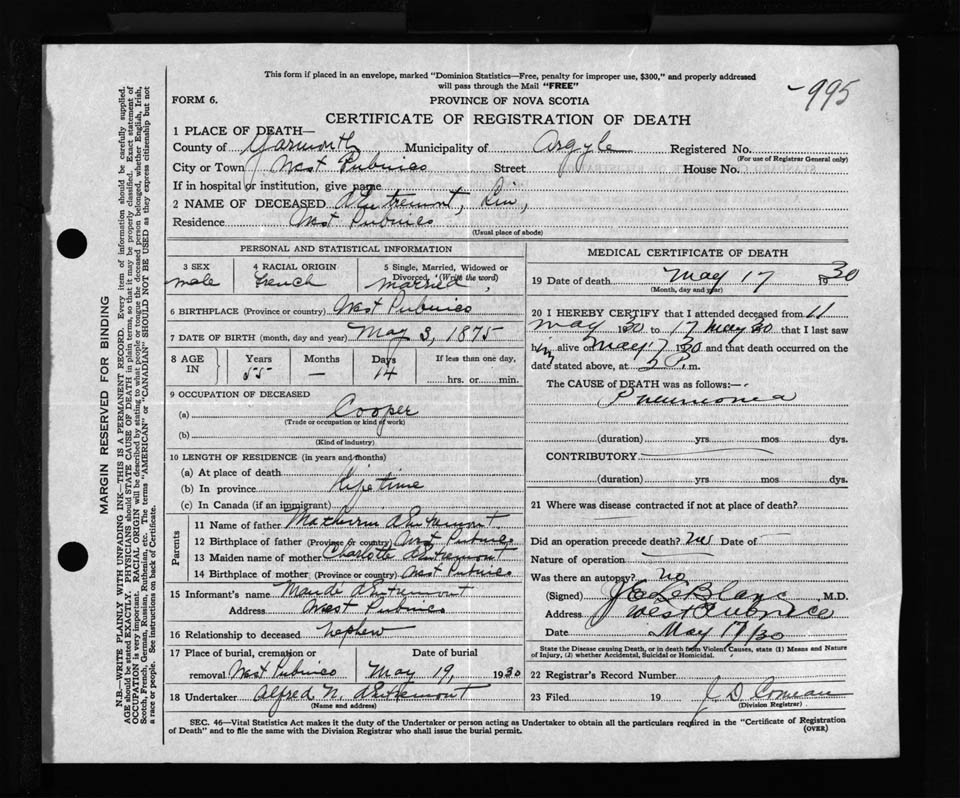 This form if placed in an envelope, marked "Dominion Statistics—Free, penalty for improper use, $300," and properly addressed
will pass through the Mail "FREE"
-995
FORM 6.
PROVINCE OF NOVA SCOTIA
CERTIFICATE OF REGISTRATION OF DEATH
1 PLACE OF DEATH—
County of Yarmouth Municipality of Argyle Registered No.
(For use of Registrar General only)
City or Town West Pubnico Street House No.
If in hospital or institution, give name
2 NAME OF DECEASED d'Entremont,
Residence West Pubnico
(Usual place of abode)
PERSONAL AND STATISTICAL INFORMATION
3 SEX
male
4 RACIAL ORIGIN
French
5 Single, Married, Widowed or
Divorced, (Write the word)
married,
6 BIRTHPLACE (Province or country) West Pubnico
7 DATE OF BIRTH (month, day and year) May 3, 1875
8 AGE IN
Years Months Days If less than one day,
55 — 14 hrs. or min.
9 OCCUPATION OF DECEASED
(a) Cooper
(Trade or occupation or kind of work)
(b)
(Kind of industry)
10 LENGTH OF RESIDENCE (in years and months)
(a) At place of death
(b) In province Life time
(c) In Canada (if an immigrant)
Parents
11 Name of father d'Entremont
12 Birthplace of father (Province or country) West Pubnico
13 Maiden name of mother Charlotte d'Entremont
14 Birthplace of mother (Province or country) West Pubnico
15 Informant's name Maude d'Entremont
Address West Pubnico
16 Relationship to deceased nephew
17 Place of burial, cremation or Date of burial
removal West Pubnico May 19, 1930
18 Undertaker Alfred N. d'Entremont
(Name and address)
MEDICAL CERTIFICATE OF DEATH
19 Date of death May 17 1930
(Month, day and year)
20 I HEREBY CERTIFY that I attended deceased from 11
May 1930 to 17 May 30 that I last saw
him alive on May 17 1930 and that death occurred on the
date stated above, at P.m.
The CAUSE OF DEATH was as follows:—
Pneumonia
(duration) yrs. mos. dys.
CONTRIBUTORY
(duration) yrs. mos. dys.
21 Where was disease contracted if not at place of death?
—
Did an operation precede death? no Date of —
Nature of operation
Was there an autopsy? no
(Signed) LeBlanc, M.D.
Address West Pubnico
Date May 17/30
State the Disease causing Death, or in death from Violent Causes, state (1) Means and Nature
of Injury, (2) whether Accidental, Suicidal or Homicidal.
22 Registrar's Record Number
23 Filed 19 J. D. Comeau
(Division Registrar)
SEC. 46—Vital Statistics Act makes it the duty of the Undertaker or person acting as Undertaker to obtain all the particulars required in the "Certificate of Registration
of Death" and to file the same with the Division Registrar who shall issue the burial permit.
(OVER)
MARGIN RESERVED FOR BINDING
N.B.—WRITE PLAINLY WITH UNFADING INK—THIS IS A PERMANENT RECORD. Every item of information should be carefully supplied.
AGE should be stated EXACTLY. PHYSICIANS should STATE CAUSE OF DEATH in plain terms, so that it may be properly classified. Exact statement of
OCCUPATION is very important. RACIAL ORIGIN will be described by stating to what people or tongue the deceased person belonged, whether English, Irish,
Scotch, French, German, Russian, Ruthenian, etc. The terms "AMERICAN" or "CANADIAN" SHOULD NOT BE USED as they express citizenship but not
a race or people. See instructions on back of Certificate.